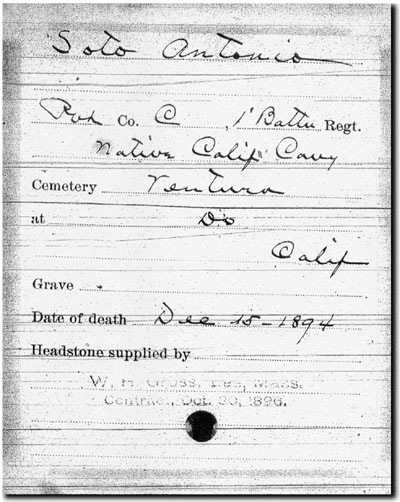 Soto Antonio
Pvt Co. C, 1' Battn Regt.
Native Calif Cavy
Cemetery Ventura
at Do
Calif
Grave
Date of death Dec 15-1894
Headstone supplied by
W. H. Gross, Lee, Mass.
Contract, Oct. 20, 1896.